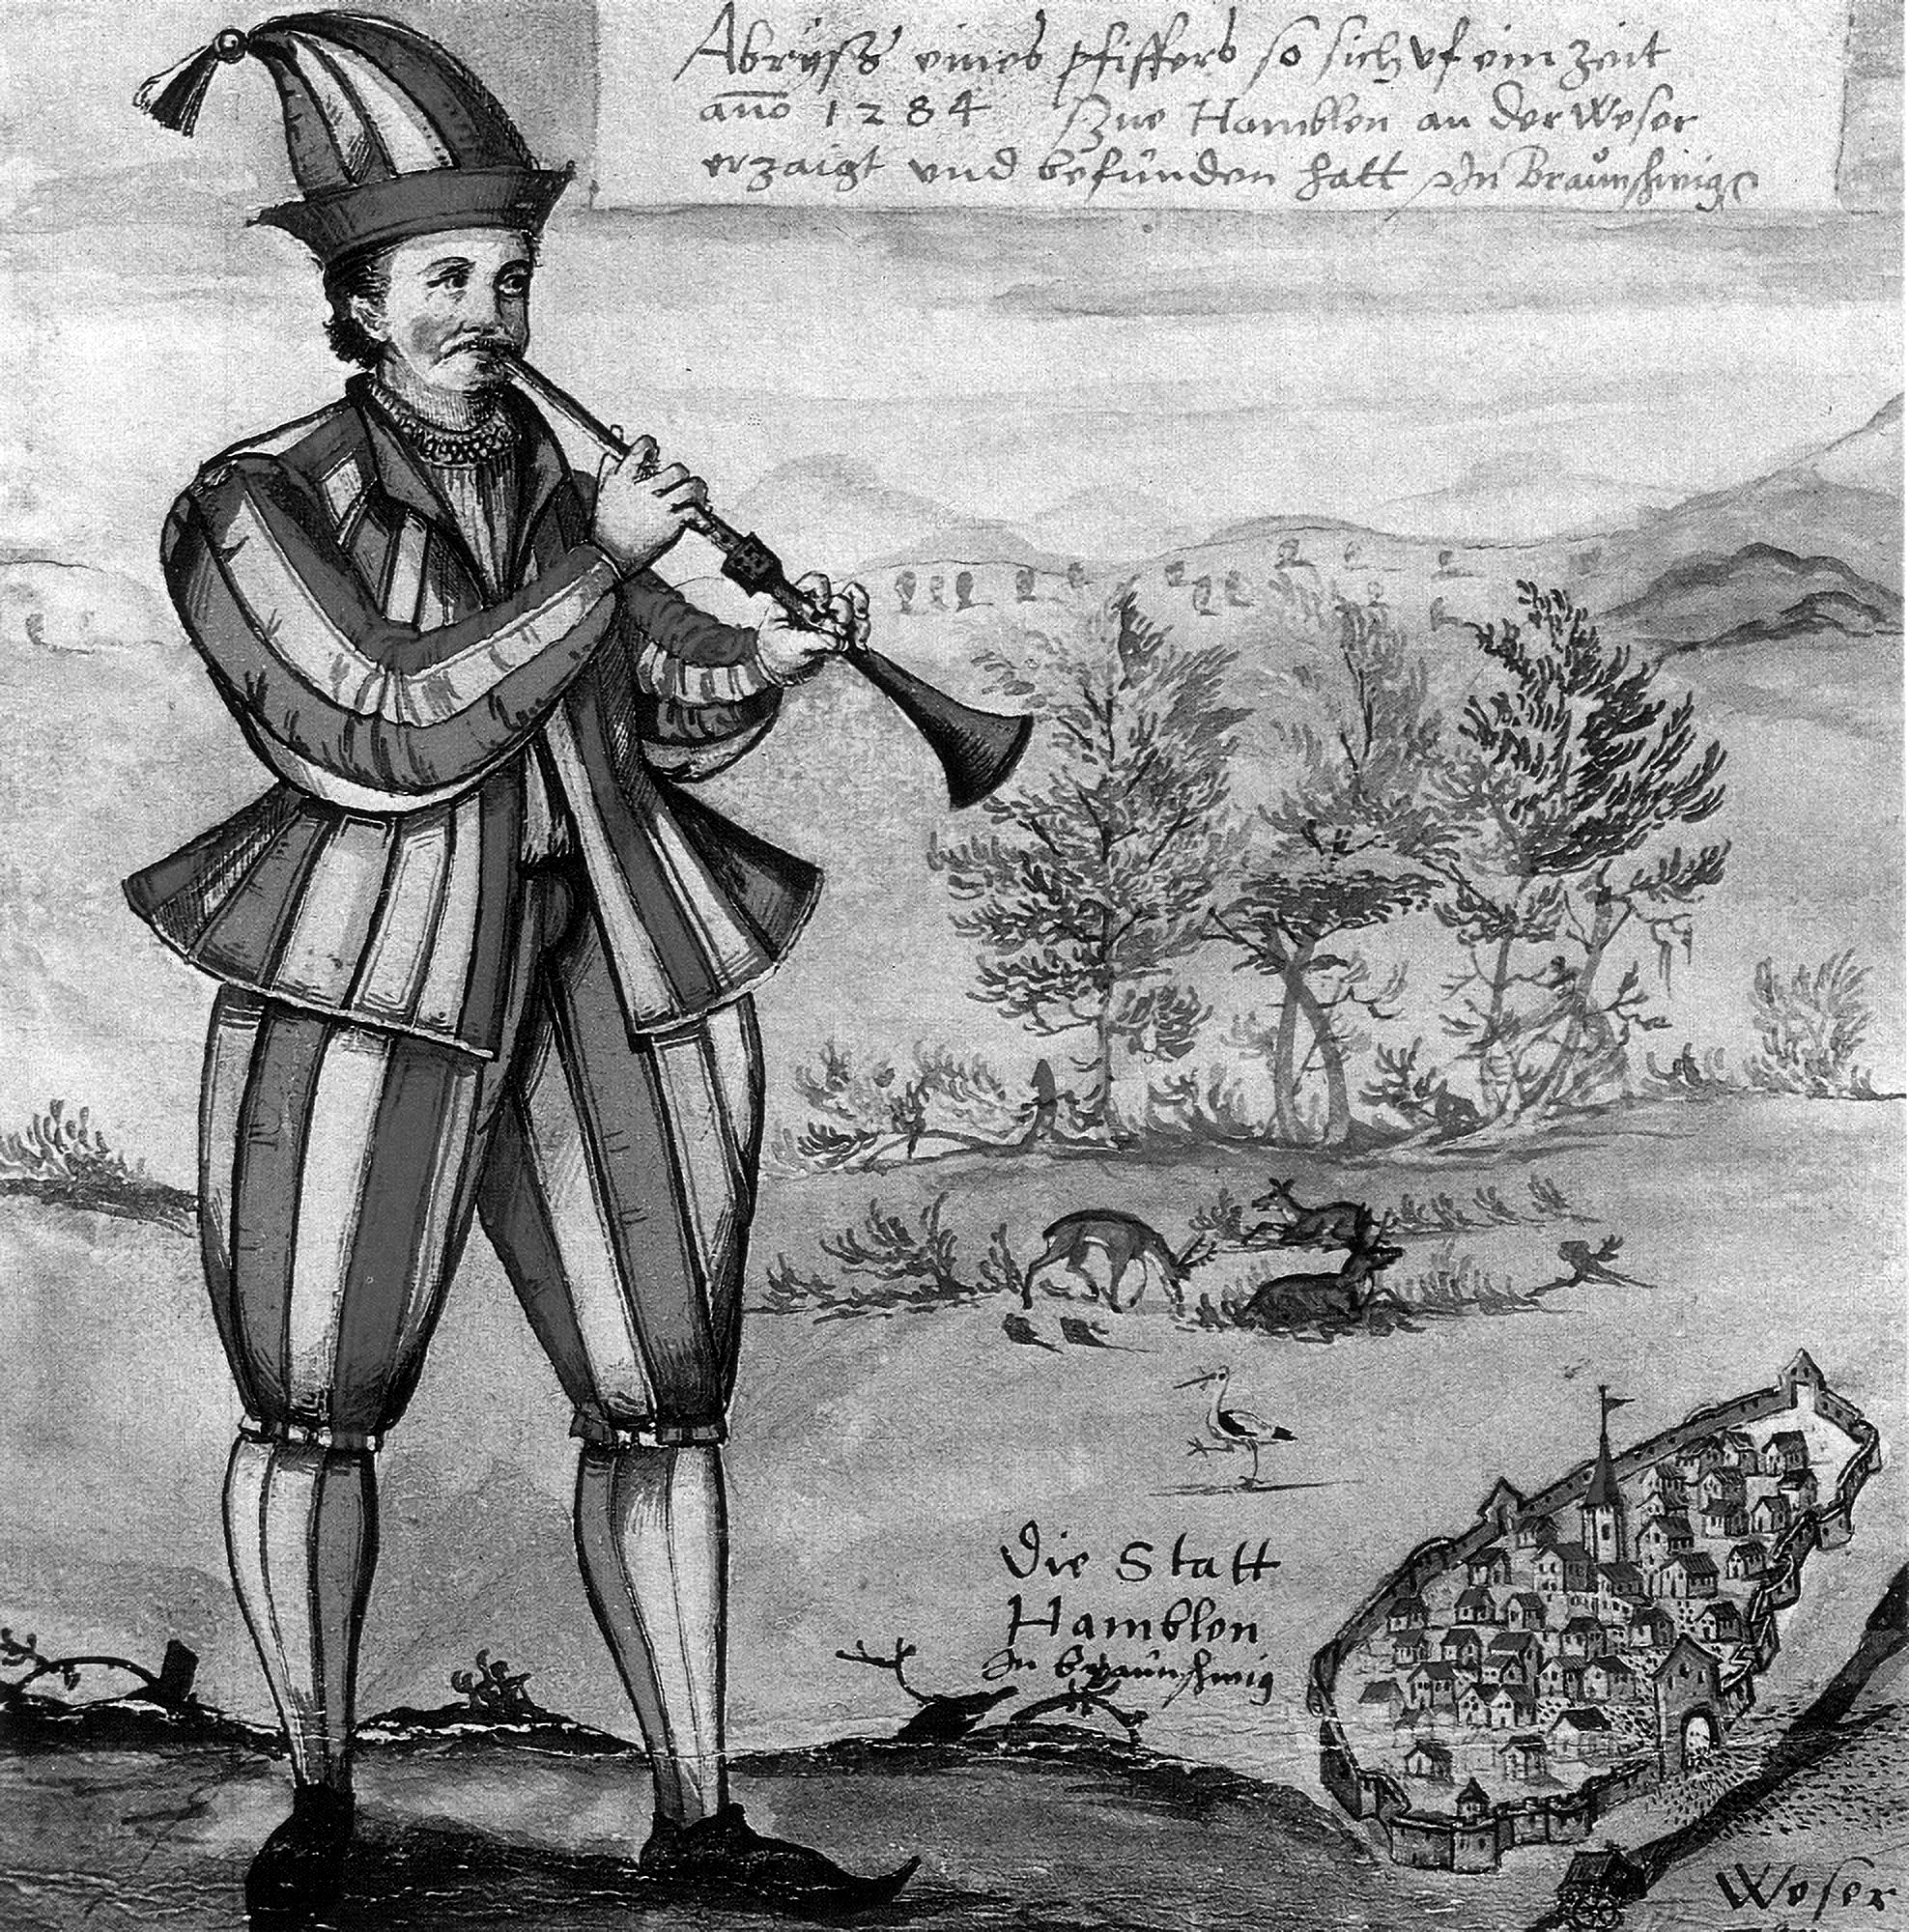 Abryss eines pfiffers so sich vf ein zeit
año 1284 Zue Hamblen an der Weser
erzaigt und befunden hatt In Braunshwig
Die Statt
Hamblen
In braunshwig
Weser